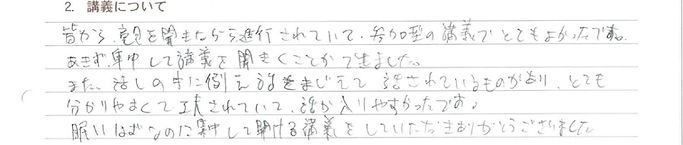 2. 講義について
皆から、意見を聞きながら進行されていて、参加型の講義でとてもよかったです。
あきず、集中して講義を聞きくことができました。
また、話しの中に例え話をまじえて話されているものがあり、とても
分かりやすくて工夫されていて、話が入りやすかったです。
眠いはずなのに集中して聞ける講義をしていただきありがとうございました